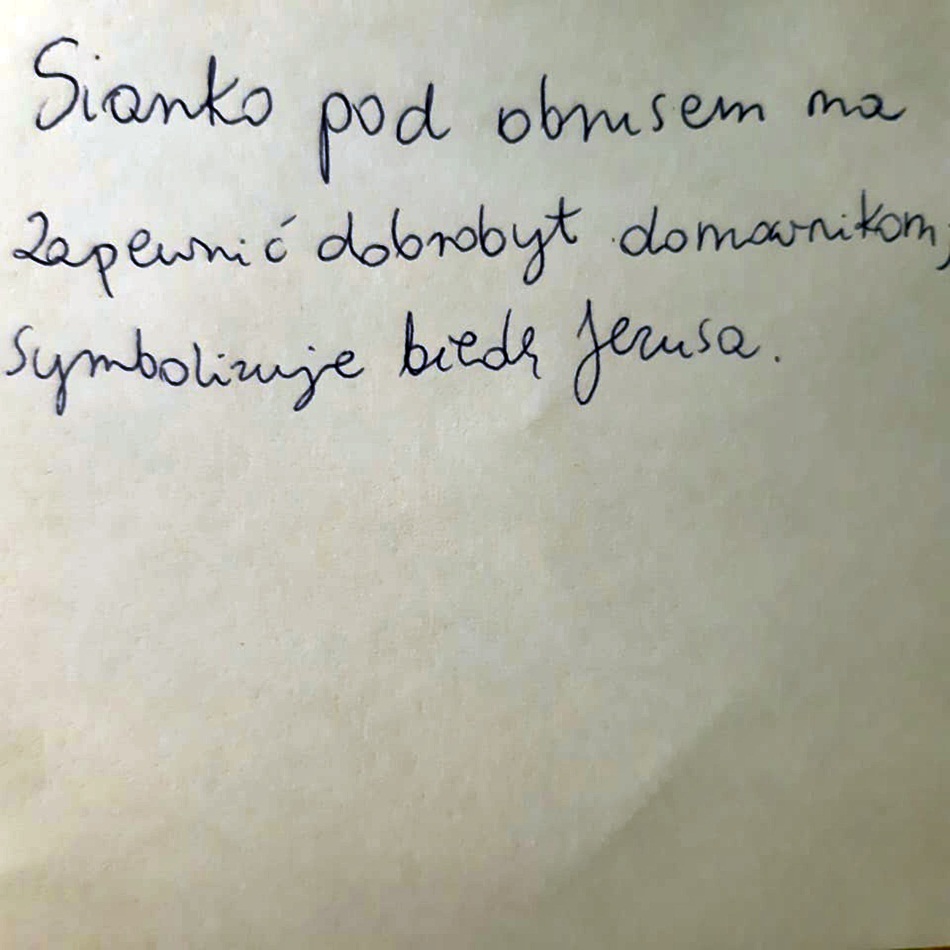 Sianko pod obrusem ma
zapewnić dobrobyt domownikom,
symbolizuje biedę Jezusa.